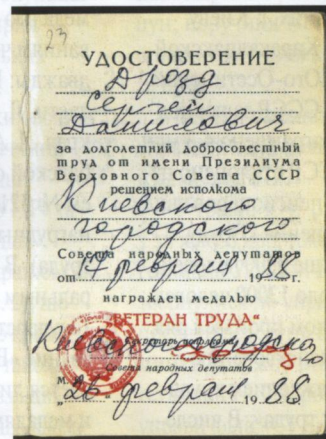 23
УДОСТОВЕРЕНИЕ
Дрозд
Сергей
Данилович
за долголетний добросовестный
труд от имени Президиума
Верховного Совета СССР
решением исполкома
Киевского
городского
Совета народных депутатов
от 17 февраля 1988
награжден медалью
"ВЕТЕРАН ТРУДА"
Киевского городского
Секретарь исполкома
Совета народных депутатов
М. П.
"26" февраля 1988.